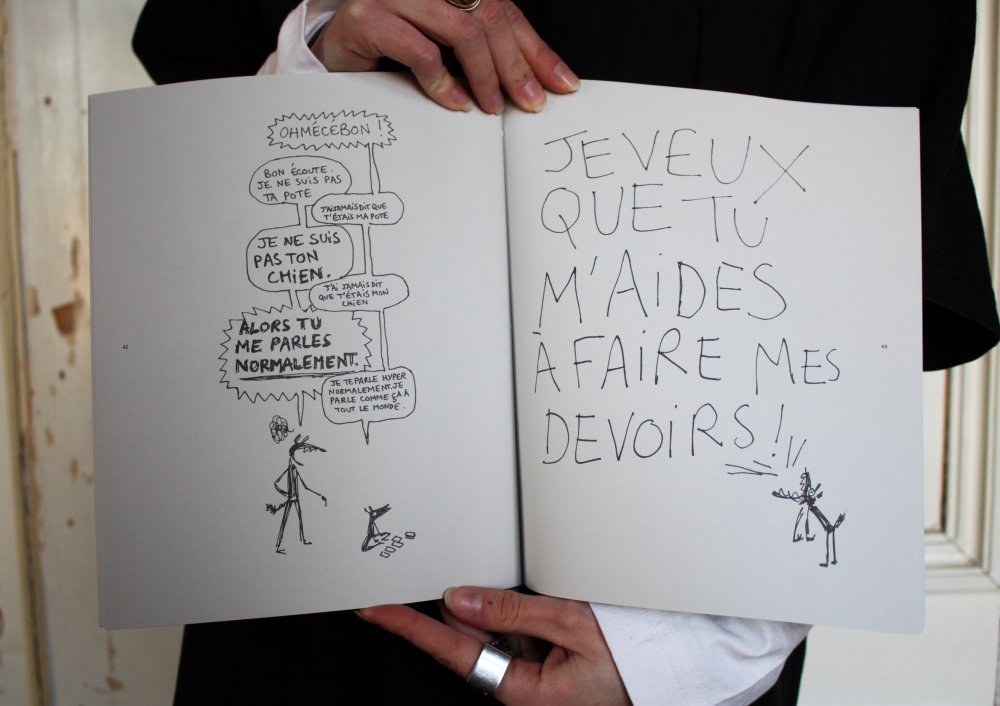 OHMÉCÉBON !
BON ÉCOUTE.
JE NE SUIS PAS
TA POTE
J'AI JAMAIS DIT QUE
T'ÉTAIS MA POTE
JE NE SUIS
PAS TON
CHIEN.
J'AI JAMAIS DIT
QUE T'ÉTAIS MON
CHIEN
ALORS TU
ME PARLES
NORMALEMENT.
JE TE PARLE HYPER
NORMALEMENT. JE
PARLE COMME ÇA À
TOUT LE MONDE.
42
JE VEUX
QUE TU
M'AIDES
À FAIRE MES
DEVOIRS !
43